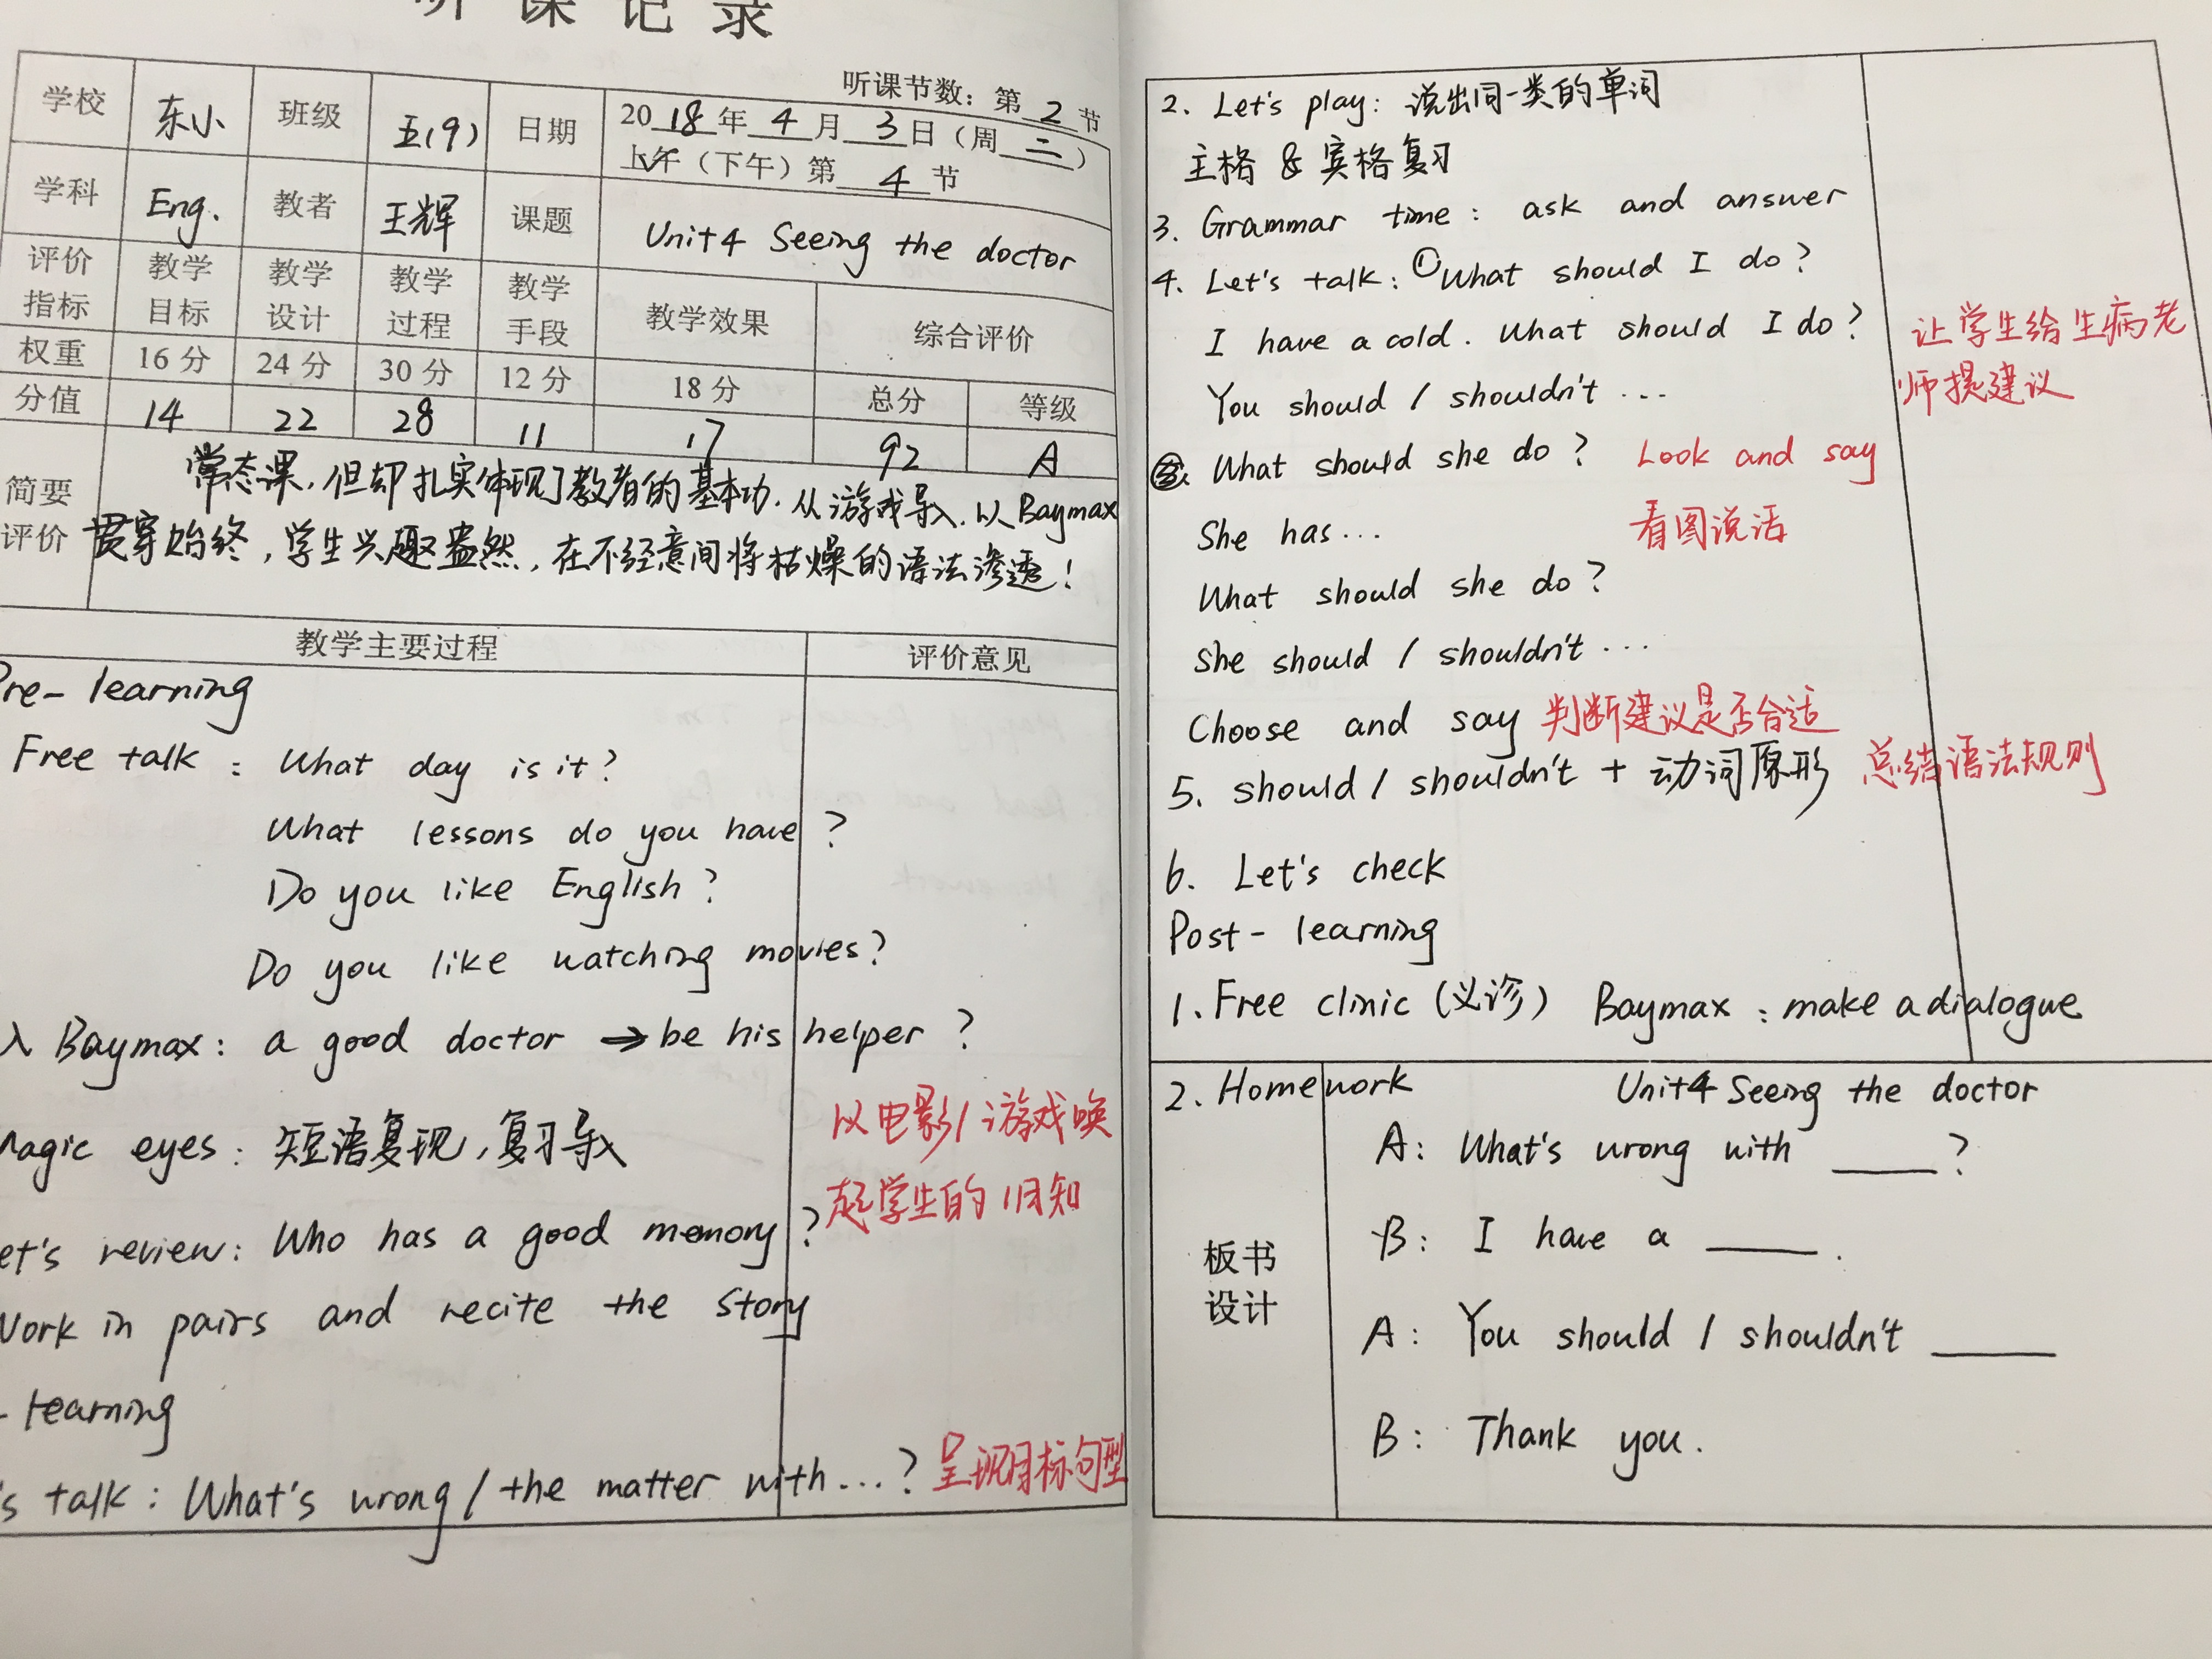 听课记录
听课节数：第 2 节
学校 东小 班级 五(9) 日期 20 18 年 4 月 3 日（周 二 ）
上午（下午）第 4 节
学科 Eng. 教者 王辉 课题 Unit4 Seeing the doctor
评价指标 教学目标 教学设计 教学过程 教学手段 教学效果 综合评价
权重 16分 24分 30分 12分 18分 总分 等级
分值 14 22 28 11 17 92 A
简要评价
常态课，但却扎实体现了教者的基本功．从游戏导入．以Baymax
贯穿始终，学生兴趣盎然，在不经意间将枯燥的语法渗透！
教学主要过程 评价意见
Pre-learning
Free talk : What day is it?
What lessons do you have ?
Do you like English ?
Do you like watching movies?
入 Baymax: a good doctor → be his helper ?
Magic eyes: 短语复现，复习导入
以电影/游戏唤
起学生的旧知
et's review: Who has a good memory ?
Work in pairs and recite the story
- learning
's talk : What's wrong / the matter with...? 呈现目标句型
2. Let's play: 说出同一类的单词
主格 & 宾格复习
3. Grammar time : ask and answer
4. Let's talk: ① What should I do ?
I have a cold. What should I do ?
You should / shouldn't ...
让学生给生病老
师提建议
What should she do ? Look and say
She has... 看图说话
What should she do ?
She should / shouldn't ...
Choose and say 判断建议是否合适
5. should / shouldn't + 动词原形 总结语法规则
6. Let's check
Post-learning
1. Free clinic (义诊) Baymax : make a dialogue
2. Homework
板书设计
Unit4 Seeing the doctor
A: What's wrong with ____ ?
B: I have a ____ .
A: You should / shouldn't ____
B: Thank you.